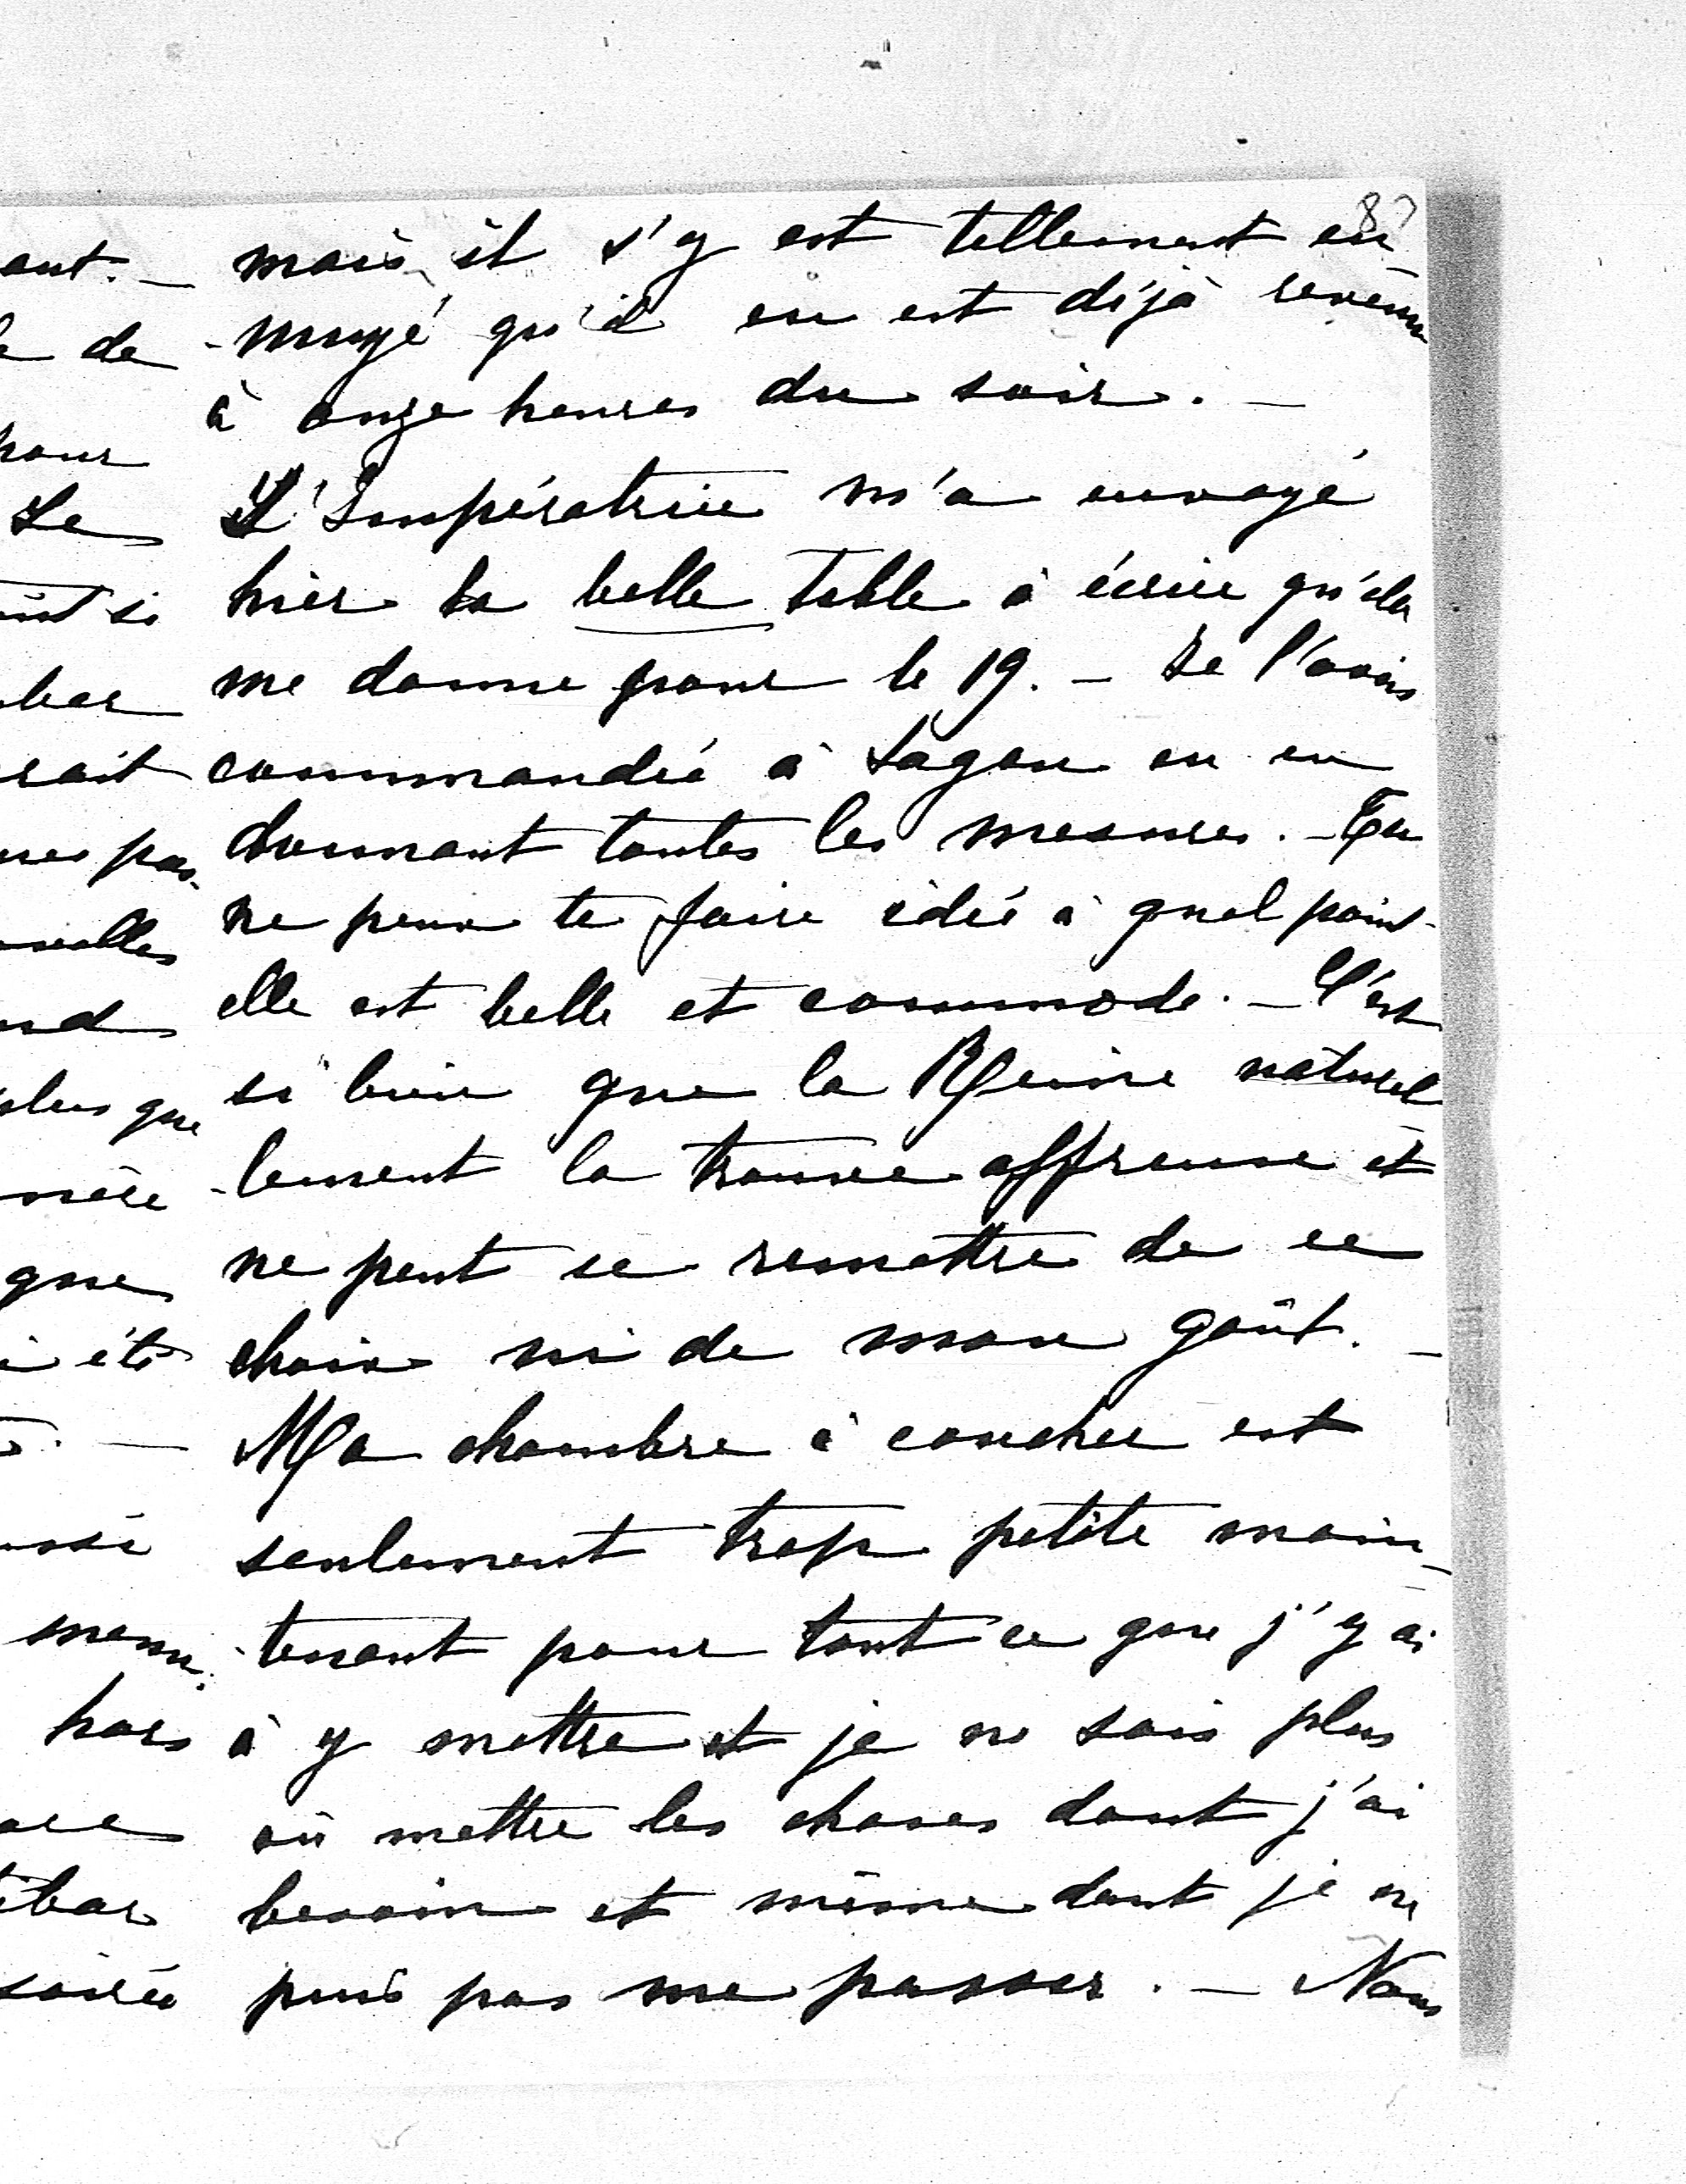 87
mais il s'y est tellement en
-nuyé qu'il en est déjà revenu
à onze heures du soir. —
L'Impératrice m'a envoyé
hier la belle table à écrire qu'elle
me donne pour le 19. — Je l'avais
commandée à Sagan en en
donnant toutes les mesures. — Tu
ne peux te faire idée à quel point
elle est belle et commode. — C'est
si bien que la Reine naturel
-lement la trouve affreuse et
ne peut se remettre de ce
choix ni de mon goût. —
Ma chambre à coucher est
seulement trop petite main-
-tenant pour tout ce que j'y ai
à y mettre et je ne sais plus
où mettre les choses dont j'ai
besoin et même dont je ne
puis pas me passer. — Nous
ant. —
de
pour
Je
si
rait
pas
nd
que
mère
que
été
hors
soirée